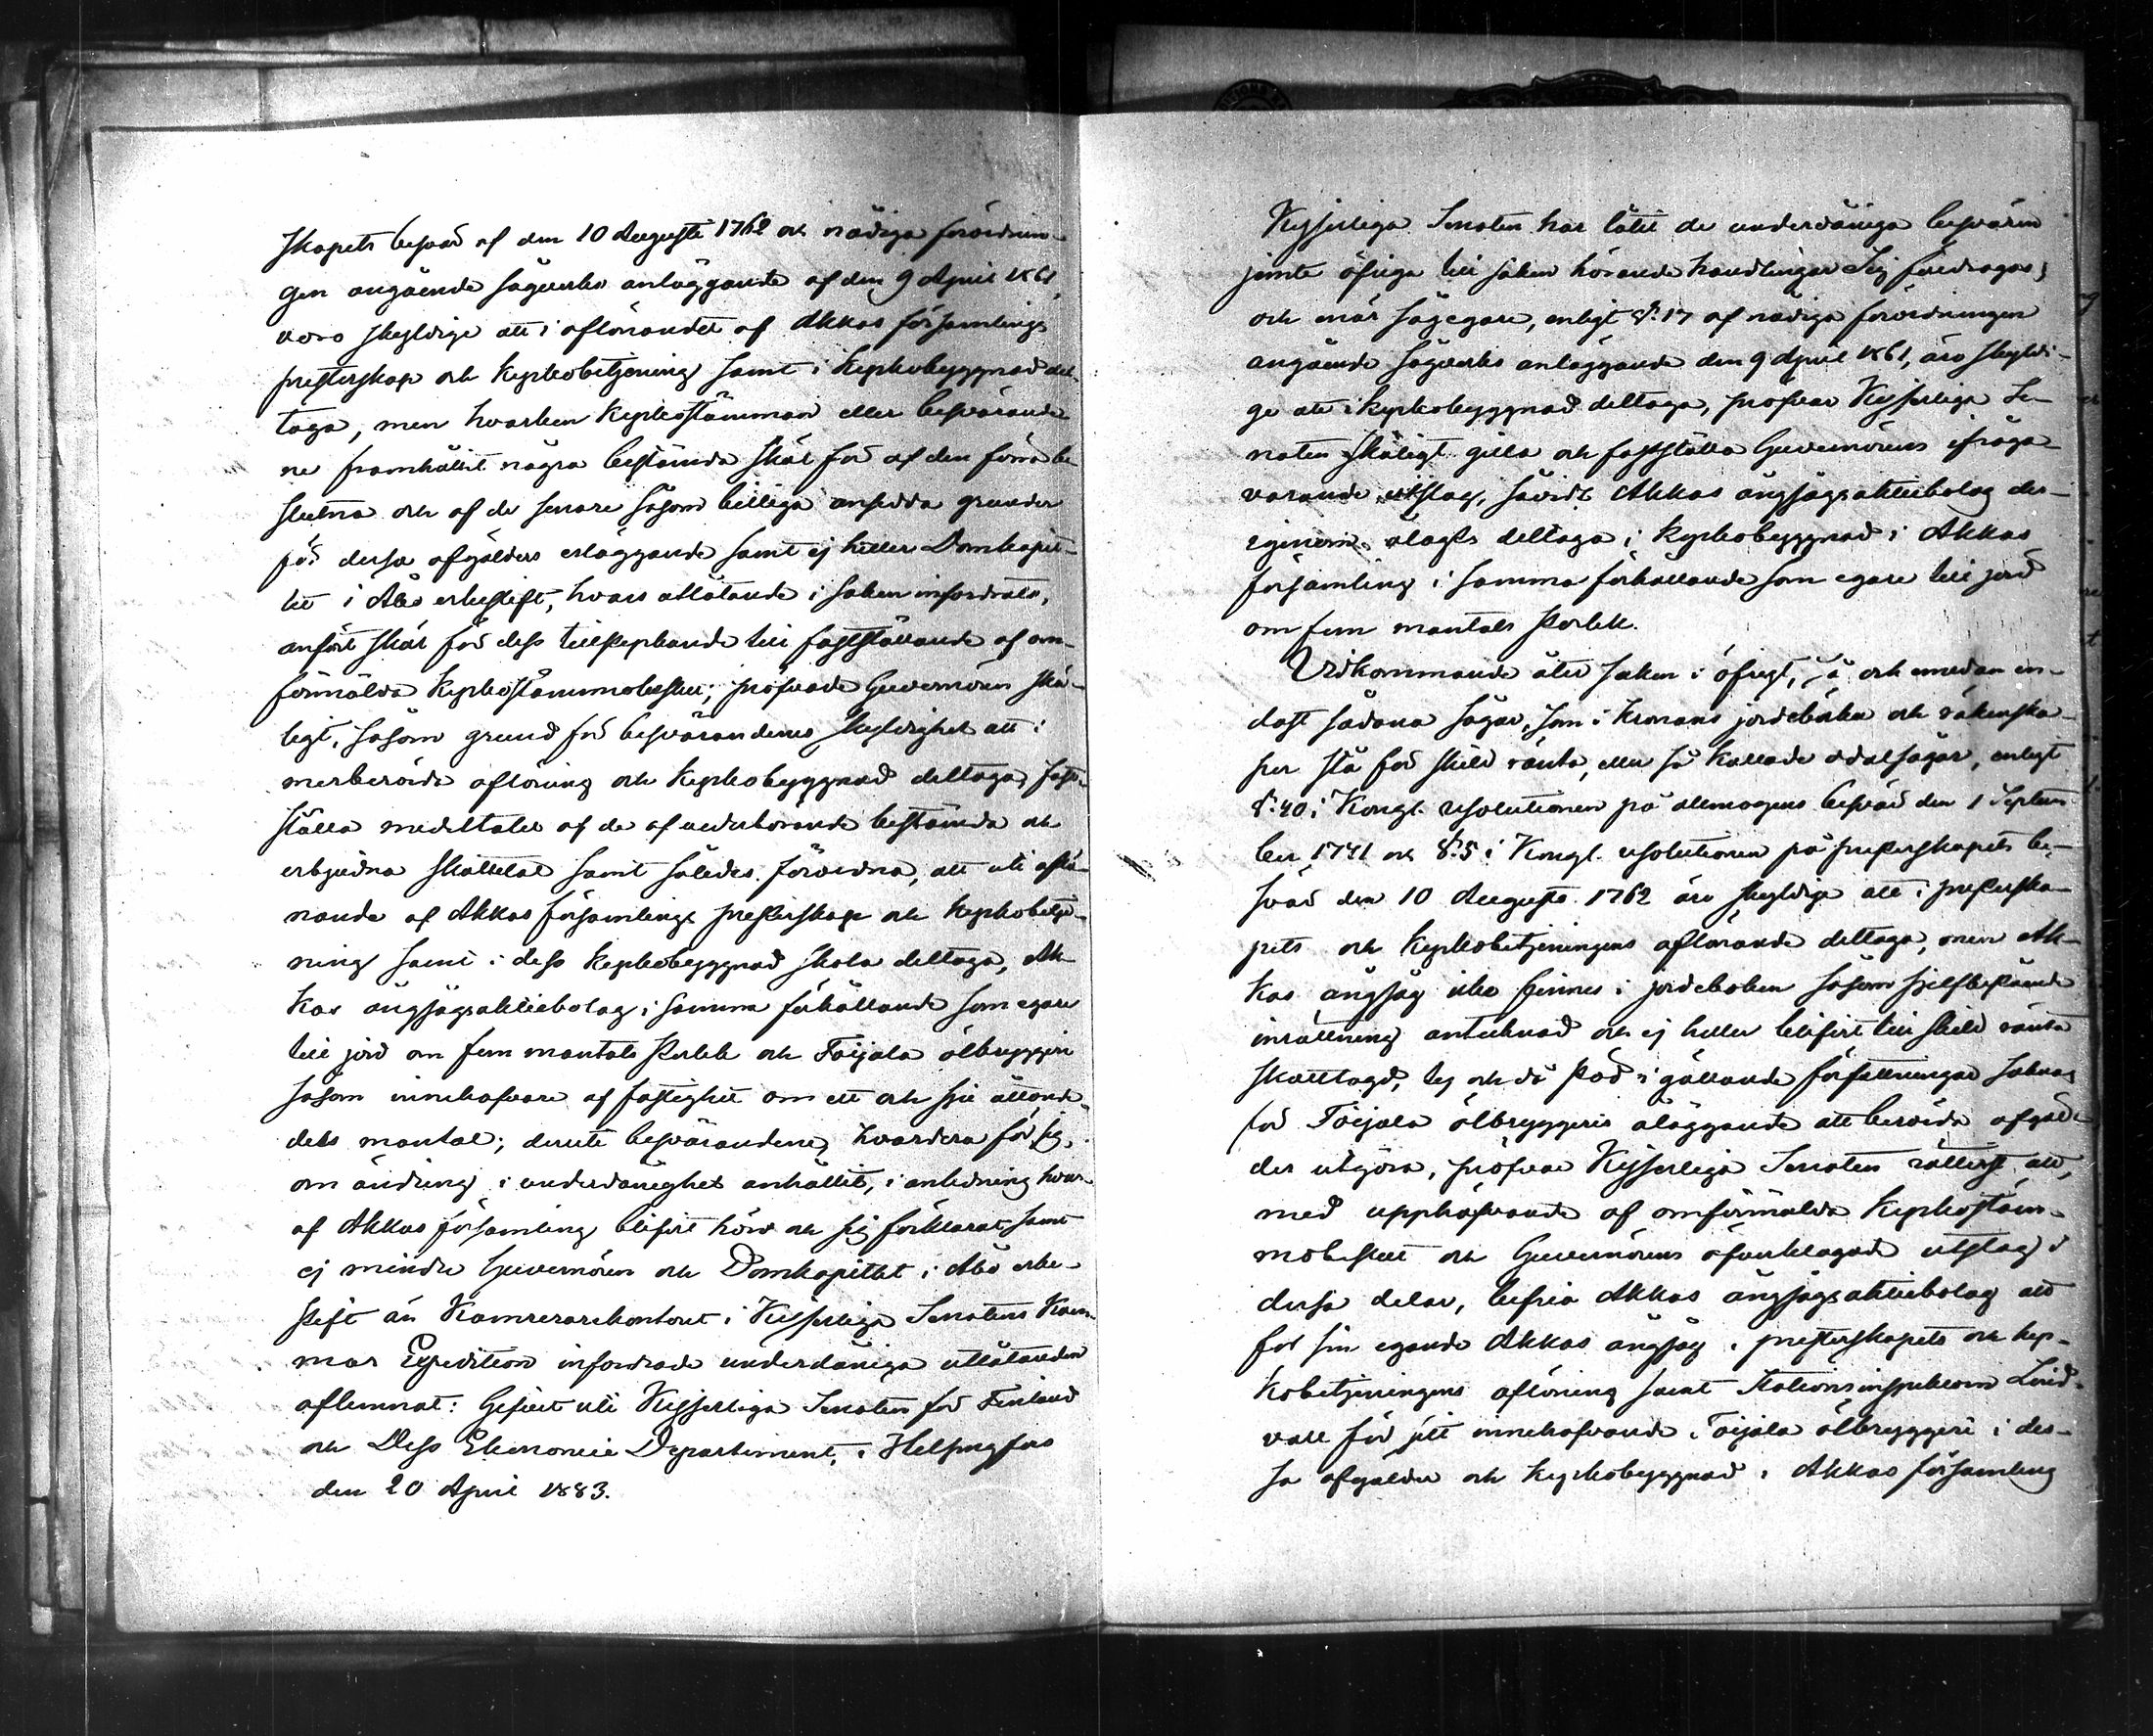 skapets besvär af den 10 Augusti 1762 och nådiga förordnin-
gen angående sågverks anläggande af den 9 April 1861,
voro skyldige att i aflönandet af Akkas församlings
presterskap och kyrkobetjening samt i kyrkobyggnad del-
taga, men hvarken kyrkostämman eller besvärande-
ne framhållit några bestämda skäl för af den förra be-
slutna och af de senare såsom billiga ansedda grunder
för dessa afgälders erläggande samt ej heller Domkapit-
let i Åbo erkestift, hvars utlåtande i saken infordrats,
anfört skäl för dess tillstyrkande till fastställande af om-
förmälda kyrkostämmobeslut; pröfvade Guvernören skä-
ligt, såsom grund för besvärandenes skyldighet att i
merberörda aflöning och kyrkobyggnad deltaga, fast-
ställa medeltalet af de af vederbörande bestämda och
erbjudna skattetal samt således förordna, att uti aflö-
nande af Akkas församlings presterskap och kyrkobetje-
ning samt i dess kyrkobyggnad skola deltaga, Ak-
kas ångsågsaktiebolag i samma förhållande som egare
till jord om fem mantals storlek och Toijala ölbryggeri
såsom innehafvare af fastighet om ett och sju åttonde-
dels mantal; deruti besvärandene, hvardera för sig,
om ändring i underdånighet anhållit, i anledning hvar-
af Akkas församling blifvit hörd och sig förklarat samt
ej mindre Guvernören och Domkapitlet i Åbo erke-
stift än Kamrerarekontoret i Kejserliga Senatens Kam-
mar Expedition infordrade underdåniga utlåtanden
aflemnat: Gifvet uti Kejserliga Senaten för Finland
och Dess Ekonomie Departement, i Helsingfors
den 20 April 1883.
Kejserliga Senaten har låtit de underdåniga besvären
jemte öfriga till saken hörande handlingar Sig föredragas;
och enär sågegare, enligt §. 17 af nådiga förordningen
angående sågverks anläggande den 9 April 1861, äro skyldi-
ge att i kyrkobyggnad deltaga, pröfvar Kejserliga Se-
naten skäligt gilla och fastställa Guvernörens ifråga-
varande utslag, såvidt Akkas ångsågsaktiebolag der-
igenom ålagts deltaga i kyrkobyggnad i Akkas
församling i samma förhållande som egare till jord
om fem mantals storlek.
Vidkommande åter saken i öfrigt, så och emedan en-
dast sådana sågar, som i kronans jordeböcker och räkenska-
per stå för skild ränta, eller så kallade odalsågar, enligt
§. 40 i Kongl. resolutionen på allmogens besvär den 1 Septem-
ber 1741 och §. 5 i Kongl. resolutionen på presterskapets be-
svär den 10 Augusti 1762 äro skyldige att i presterska-
pets och kyrkobetjeningens aflönande deltaga, men Ak-
kas ångsåg icke finnes i jordeboken såsom sjelfbestående
inrättning antecknad och ej heller blifvit till skild ränta
skattlagd, ty och då stöd i gällande författningar saknas
för Toijala ölbryggeris åläggande att berörda afgäl-
der utgöra, pröfvar Kejserliga Senaten rättvist att,
med upphäfvande af omförmälda kyrkostäm-
mobeslut och Guvernörens öfverklagade utslag i
dessa delar, befria Akkas ångsågsaktiebolag att
för sin egande Akkas ångsåg i presterskapets och kyr-
kobetjeningens aflöning samt Stationsinspektoren Lind-
vall för sitt innehafvande Toijala ölbryggeri i des-
sa afgälder och kyrkobyggnad i Akkas församling